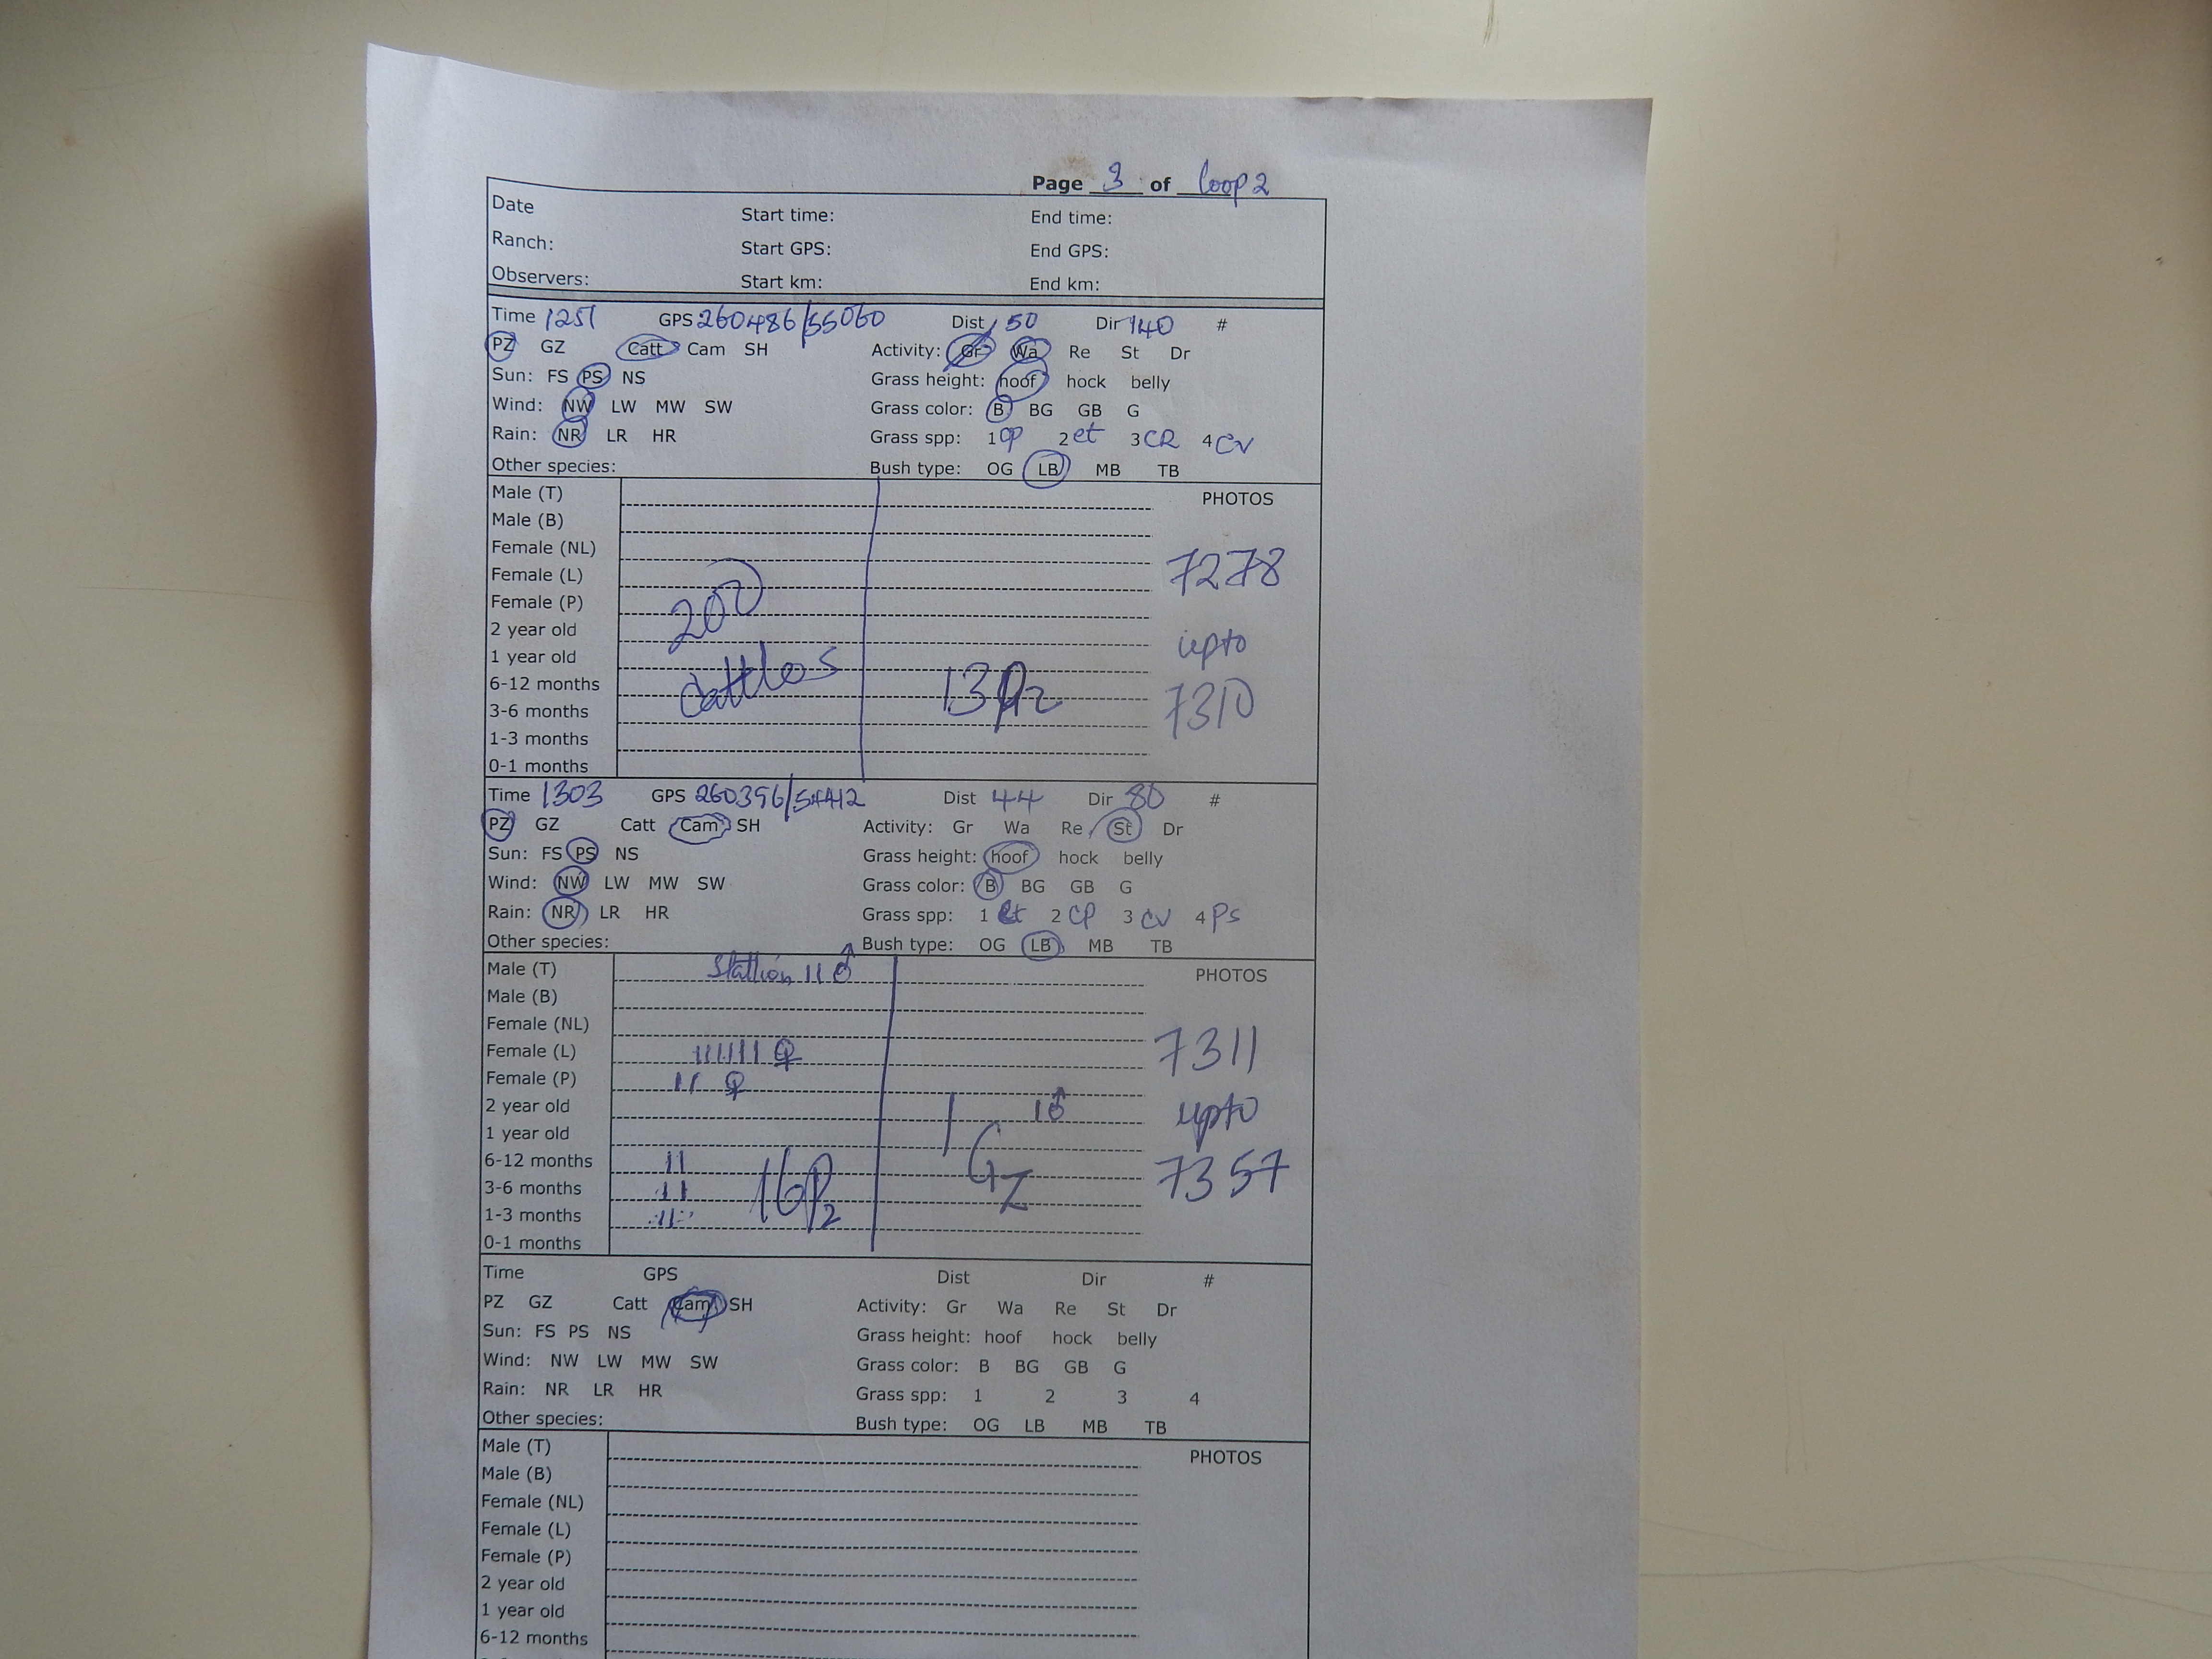 Page 3 of Loop 2
Date Start time: End time:
Ranch: Start GPS: End GPS:
Observers: Start km: End km:
Time 1251 GPS 260486/55060 Dist 150 Dir 140 #
PZ GZ Catt Cam SH Activity: Gr Wa Re St Dr
Sun: FS PS NS Grass height: hoof hock belly
Wind: NW LW MW SW Grass color: B BG GB G
Rain: NR LR HR Grass spp: 1 cp 2 et 3 CR 4 CV
Other species: Bush type: OG LB MB TB
Male (T) PHOTOS
Male (B)
Female (NL) 7278
Female (L)
Female (P) 200
2 year old upto
1 year old
6-12 months Cattles 13 Pz 7310
3-6 months
1-3 months
0-1 months
Time 1303 GPS 260396/54412 Dist 44 Dir 80 #
PZ GZ Catt Cam SH Activity: Gr Wa Re St Dr
Sun: FS PS NS Grass height: hoof hock belly
Wind: NW LW MW SW Grass color: B BG GB G
Rain: NR LR HR Grass spp: 1 et 2 cp 3 cv 4 Ps
Other species: Bush type: OG LB MB TB
Male (T) Stallion 11 ♂ PHOTOS
Male (B)
Female (NL)
Female (L) 111111 ♀ 7311
Female (P) 11 ♀
2 year old 1 ♂ upto
1 year old
6-12 months 11 1 GZ 7357
3-6 months 11 16Pz
1-3 months 11
0-1 months
Time GPS Dist Dir #
PZ GZ Catt Cam SH Activity: Gr Wa Re St Dr
Sun: FS PS NS Grass height: hoof hock belly
Wind: NW LW MW SW Grass color: B BG GB G
Rain: NR LR HR Grass spp: 1 2 3 4
Other species: Bush type: OG LB MB TB
Male (T) PHOTOS
Male (B)
Female (NL)
Female (L)
Female (P)
2 year old
1 year old
6-12 months